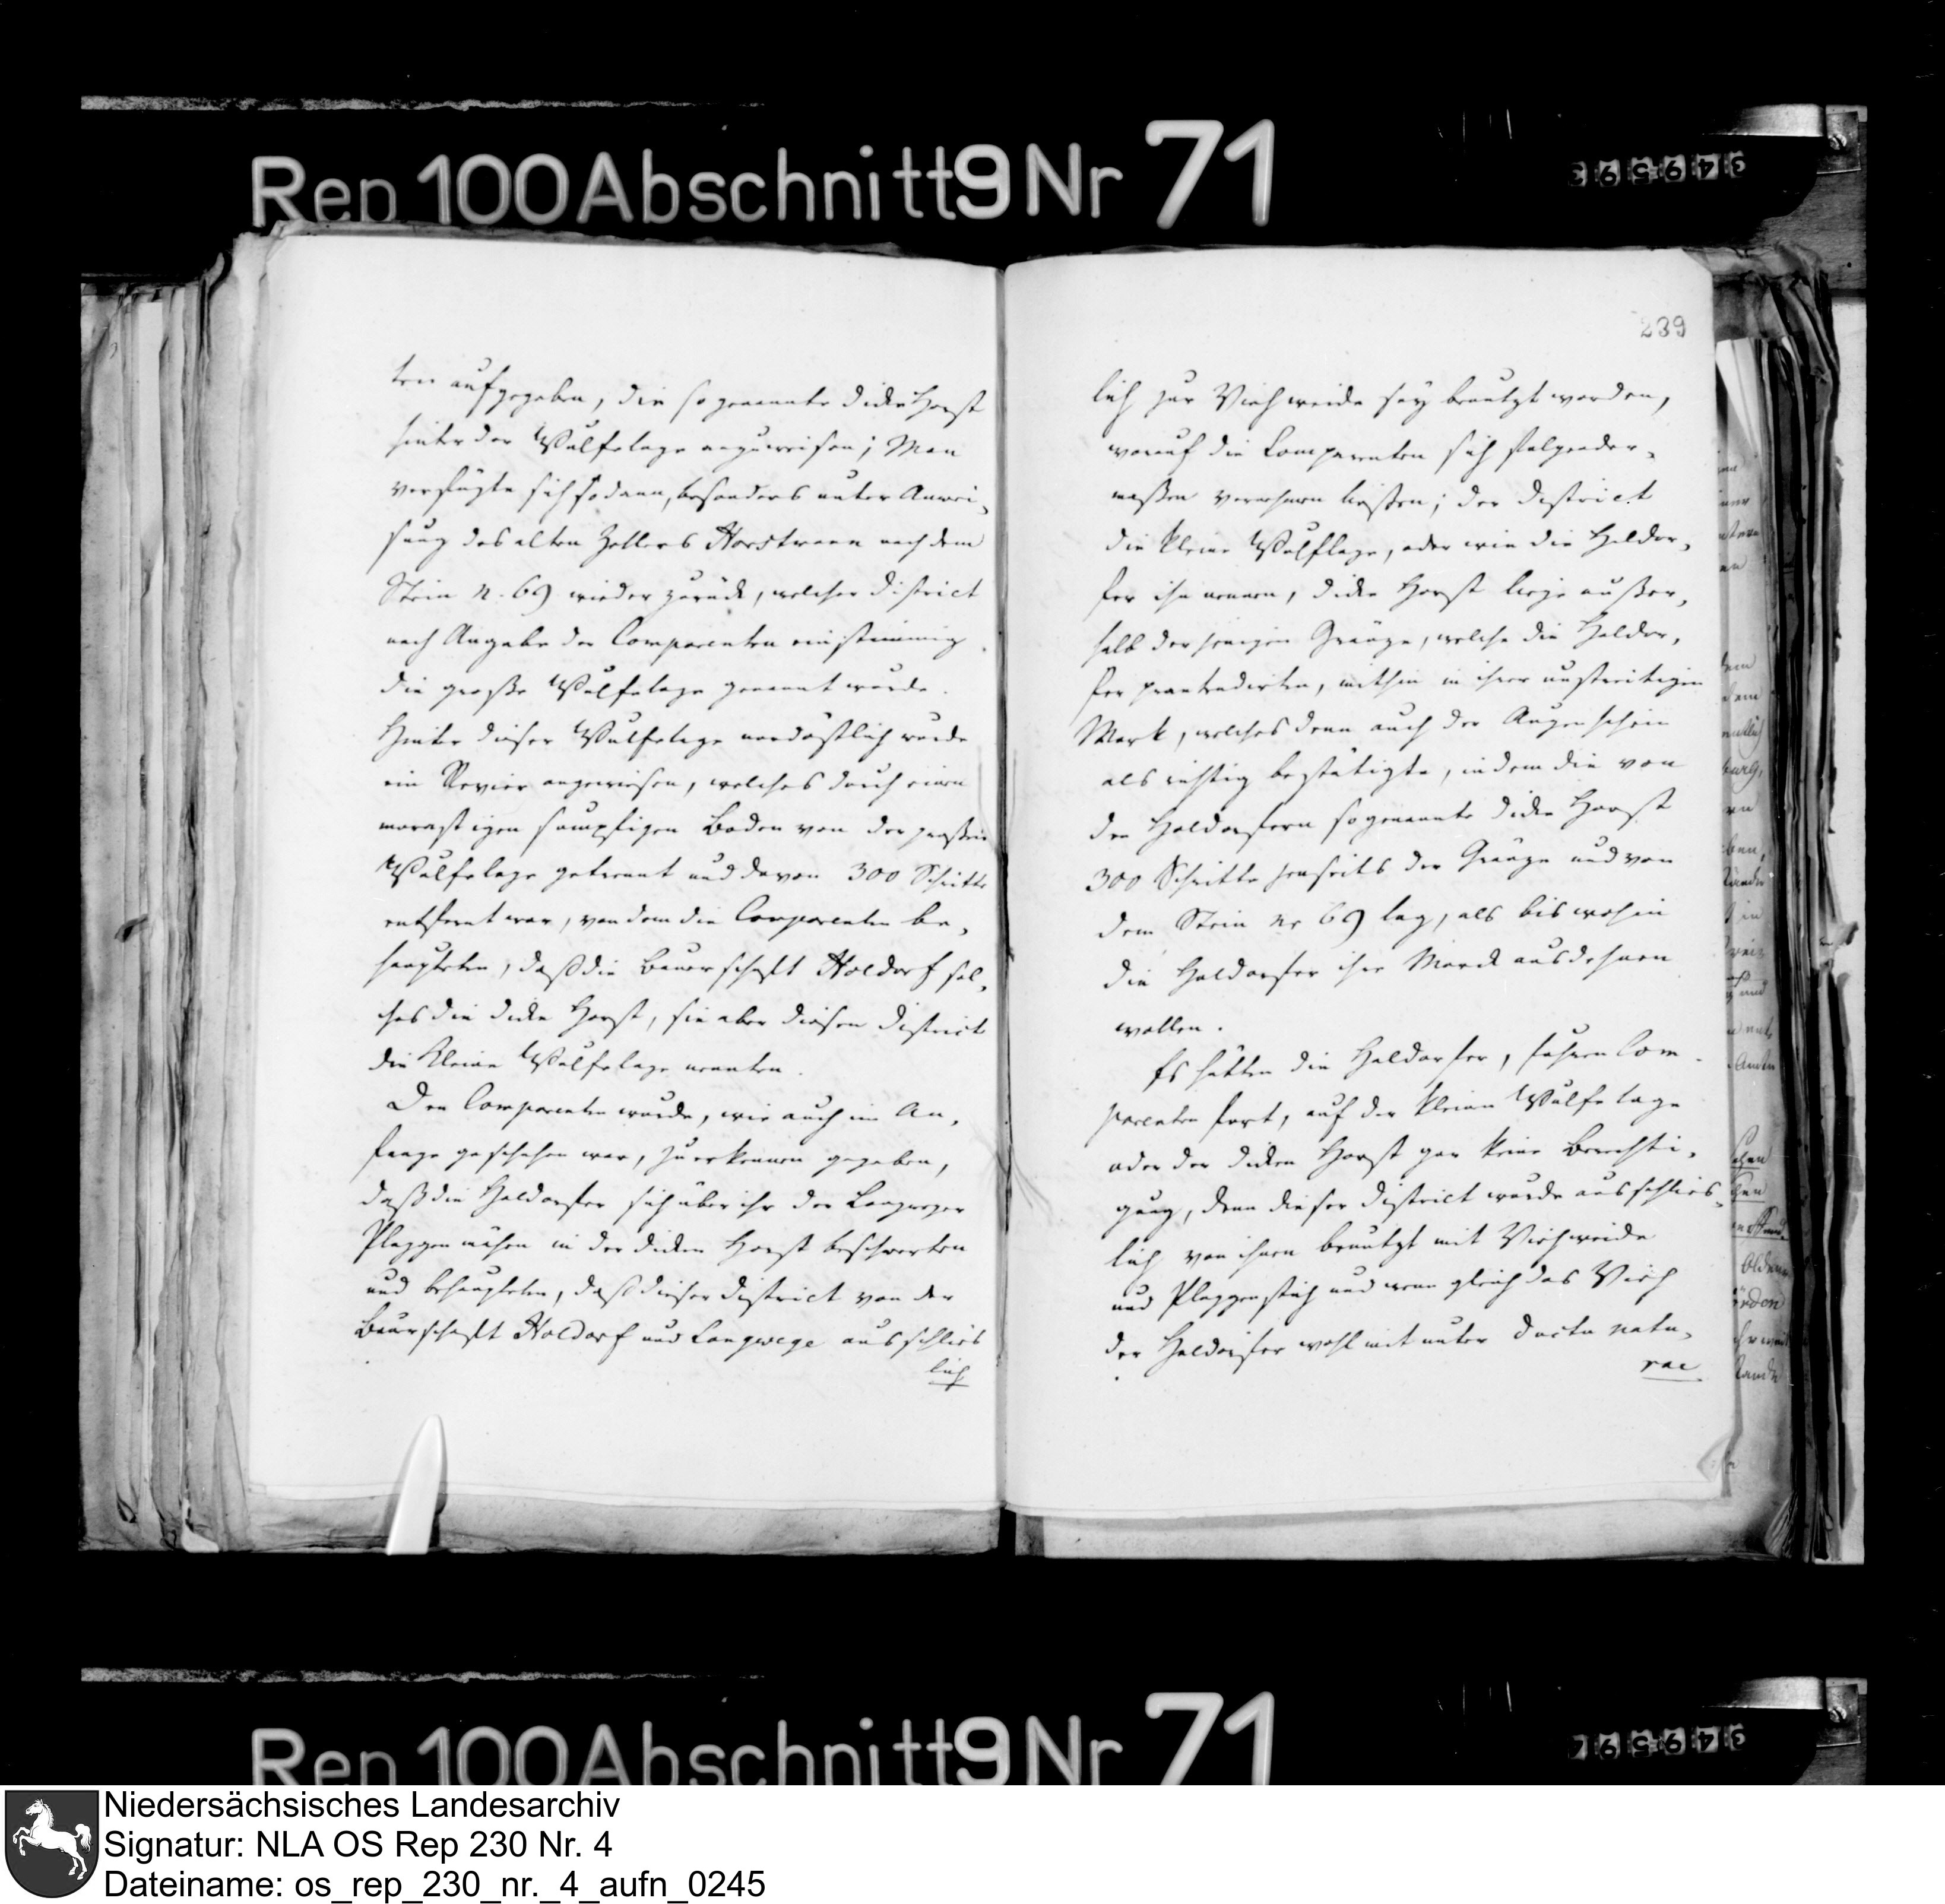 Rep 100 Abschnitt 9 Nr 71
349593
239
ten aufgegeben, die so genannte dicke Horst
hinter der Wulfelage anzuweisen; Man
verfügte sich sodann, besonders unter Anwei-
sung des alten Zellers Horstmann nach dem
Stein N. 69 wieder zurück, welcher District
nach Angabe der Comparenten einstimmig
die große Wulfelage genannt wurde.
Hinter dieser Wulfelage nordöstlich wurde
ein Revier angewiesen, welches durch einen
morastigen sumpfigen Boden von der großen
Wulfelage getrennt und davon 300 Schritte
entfernt war, von dem die Comparenten be-
haupteten, daß die Bauerschaft Holdorf sol-
ches die dicke Horst, sie aber diesen District
die kleine Wulfelage nennten.
Den Comparenten wurde, wie auch im An-
fange geschehen war, zu erkennen gegeben,
daß die Holdorfer sich über ihr der Langweger
Plaggenmähen in der dicken Horst beschwerten
und behaupteten, daß dieser District von der
Bauerschaft Holdorf und Langwege ausschlies
lich
lich zur Viehweide sey benutzt worden,
worauf die Comparenten sich folgender-
maßen vernehmen ließen; der District
die kleine Wulflage, oder wie die Holdor-
fer ihn nennen, dicke Horst liege außer-
halb derjenigen Gränze, welche die Holdor-
fer praetendirten, mithin in ihrer unstreitigen
Mark, welches denn auch der Augenschein
als richtig bestätigte, indem die von
den Holdorfern sogenannte dicke Horst
300 Schritte jenseits der Gränze und von
dem Stein Nr 69 lag, als bis wohin
die Holdorfer ihre Marck ausdehnen
wollen.
Es hätten die Holdorfer, fuhren Com-
parenten fort, auf der kleinen Wulfelage
oder der dicken Horst gar keine Berechti-
gung, denn dieser District wurde ausschlies-
lich von ihnen benutzt mit Viehweide
und Plaggenstich und wenn gleich das Vieh
der Holdorfer wohl mitunter ductu natu-
rae
Rep 100 Abschnitt 9 Nr 71
Niedersächsisches Landesarchiv
Signatur: NLA OS Rep 230 Nr. 4
Dateiname: os_rep_230_nr._4_aufn_0245